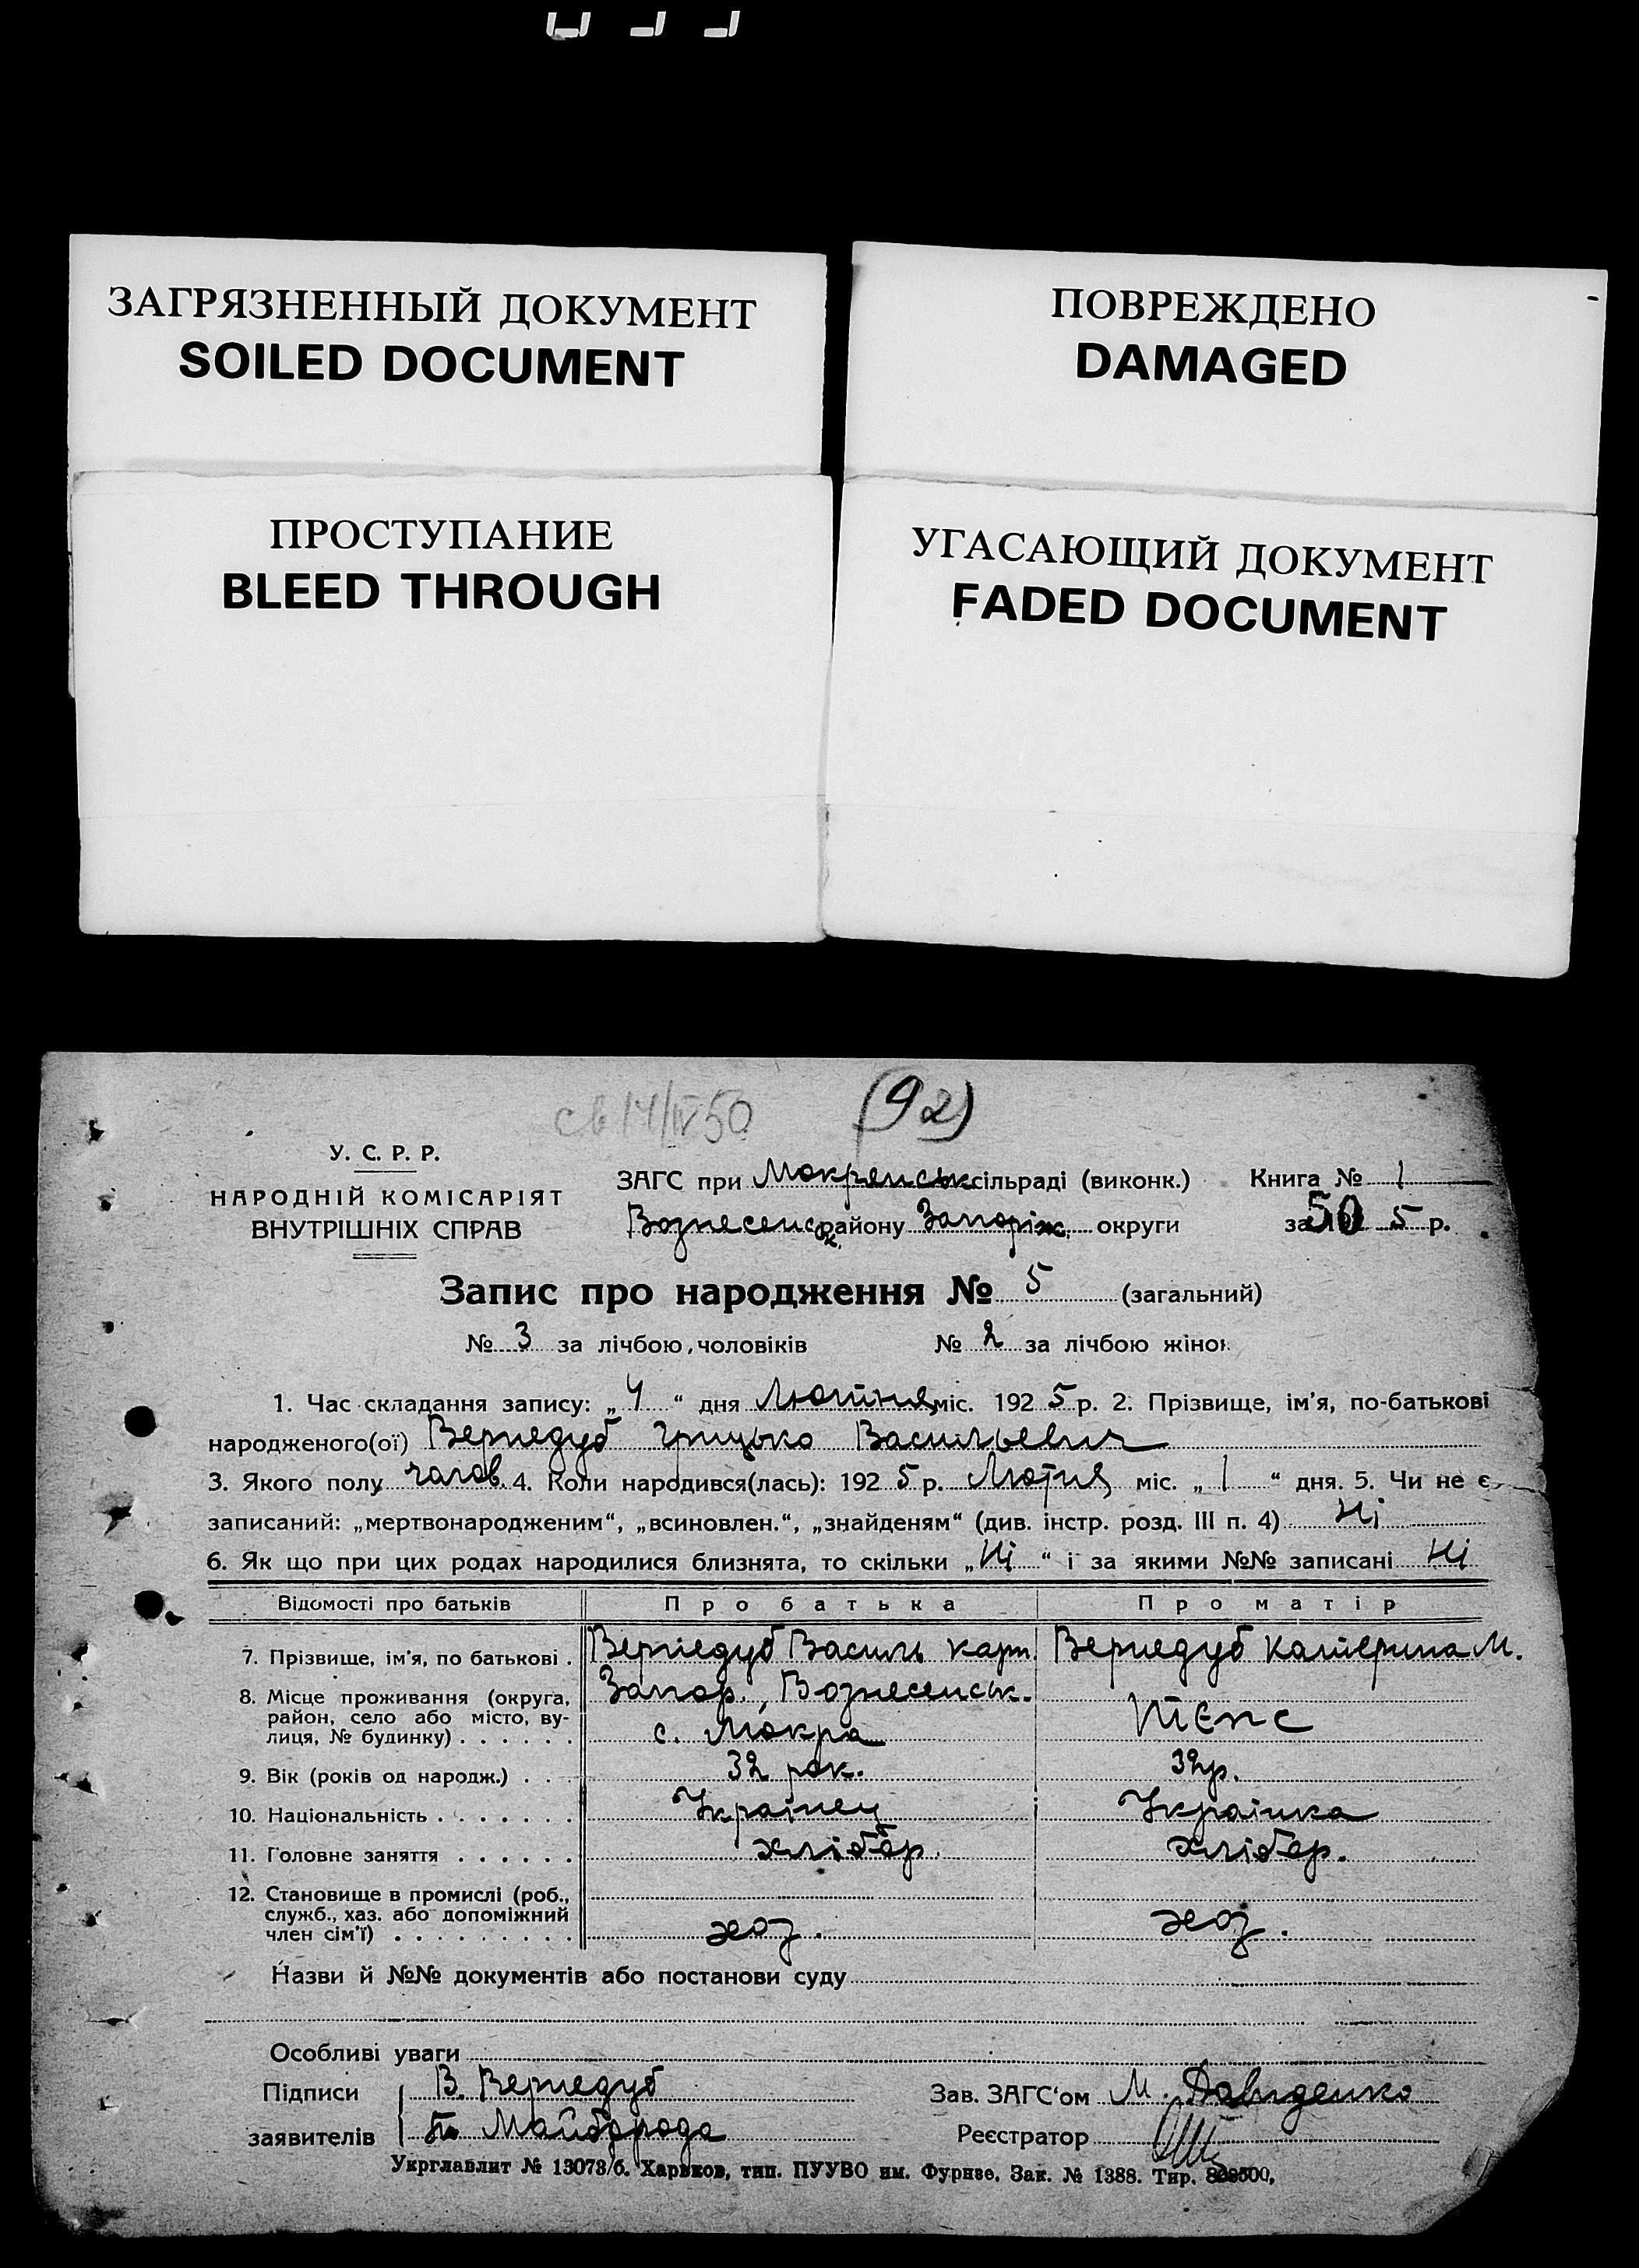 ЗАГРЯЗНЕННЫЙ ДОКУМЕНТ
SOILED DOCUMENT
ПОВРЕЖДЕНО
DAMAGED
ПРОСТУПАНИЕ
BLEED THROUGH
УГАСАЮЩИЙ ДОКУМЕНТ
FADED DOCUMENT
св 14/IV 50 (92)
У. С. Р. Р.
НАРОДНІЙ КОМІСАРІЯТ
ВНУТРІШНІХ СПРАВ
ЗАГС при Мокрянськ сільраді (виконк.) Книга № 1
Вознесенськ. району Запоріж. округи за 50 5 р.
Запис про народження № 5 (загальний)
№ 3 за лічбою чоловіків № 2 за лічбою жінок
1. Час складання запису: „ 4 “ дня Лютня міс. 192 5 р. 2. Прізвище, ім'я, по-батькові
народженого(ої) Вернедуб Грицько Васильевич
3. Якого полу чолов. 4. Коли народився(лась): 192 5 р. Лютня міс. „ 1 “ дня. 5. Чи не є
записаний: „мертвонародженим“, „всиновлен.“, „знайденям“ (див. інстр. розд. III п. 4) Ні
6. Як що при цих родах народилися близнята, то скільки „ Ні “ і за якими №№ записані Ні
Відомості про батьків Про батька Про матір
7. Прізвище, ім'я, по батькові . Вернедуб Василь карп. Вернедуб Катерина М.
8. Місце проживання (округа, Запор., Вознесенськ.
район, село або місто, ву-
лиця, № будинку) . . . . . . с. Мокра теж
9. Вік (років од народж.) . . . 32 рок. 32 р.
10. Національність . . . . . . . Українец Українка
11. Головне заняття . . . . . . хлібор. хлібор.
12. Становище в промислі (роб.,
служб., хаз. або допоміжний
член сім'ї) . . . . . . . . . хоз. хоз.
Назви й №№ документів або постанови суду
Особливі уваги
Підписи В. Вернедуб Зав. ЗАГС'ом М. Давиденко
заявителів Майборода Реєстратор
Укрглавлит № 13073/б. Харьков, тип. ПУУВО им. Фурнзе. Зак. № 1388. Тир.